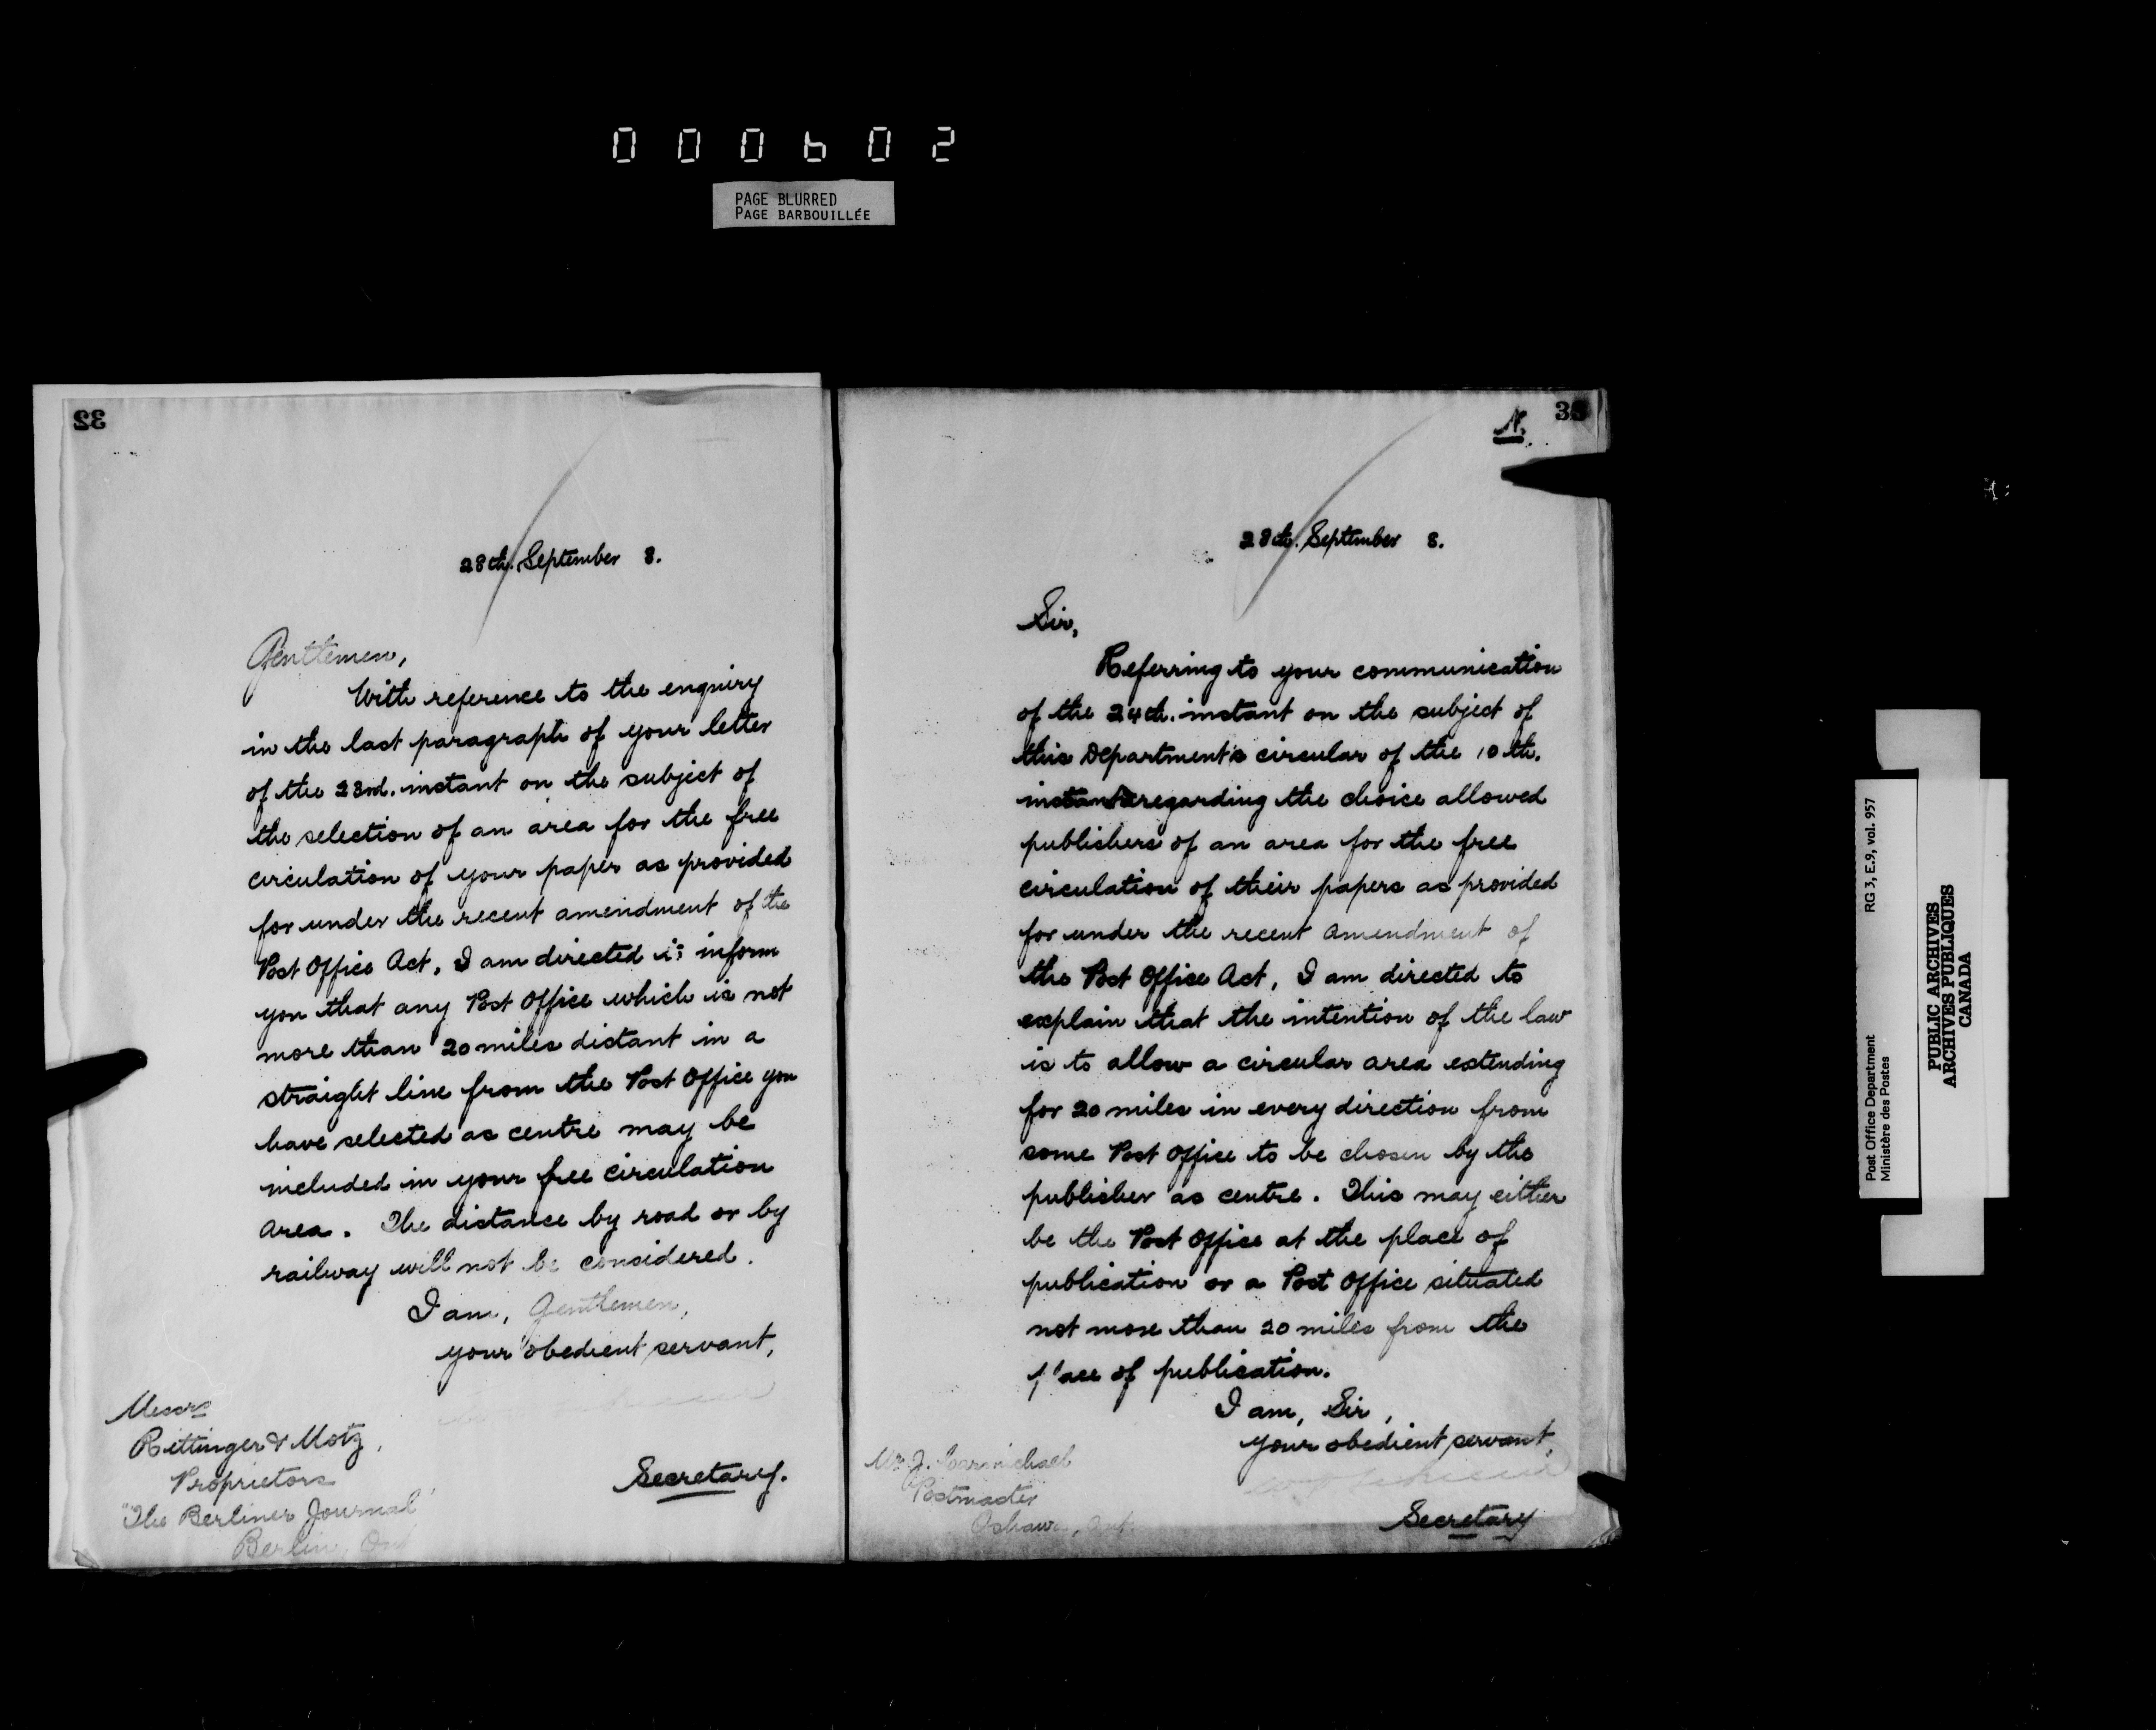 000602
PAGE BLURRED
PAGE BARBOUILLÉE
32
28th. September 8.
Gentlemen,
With reference to the enquiry
in the last paragraph of your letter
of the 23rd. instant on the subject of
the selection of an area for the free
circulation of your paper as provided
for under the recent amendment of the
Post Office Act, I am directed to inform
you that any Post Office which is not
more than 20 miles distant in a
straight line from the Post Office you
have selected as centre may be
included in your free circulation
area. The distance by road or by
railway will not be considered.
I am, Gentlemen,
your obedient servant,
Secretary.
Messrs
Rittinger & Motz,
Proprietors
"The Berliner Journal"
Berlin, Ont
N.
28th. September 8.
Sir,
Referring to your communication
of the 24th. instant on the subject of
this Department's circular of the 10th.
instant regarding the choice allowed
publishers of an area for the free
circulation of their papers as provided
for under the recent amendment of
the Post Office Act, I am directed to
explain that the intention of the law
is to allow a circular area extending
for 20 miles in every direction from
some Post Office to be chosen by the
publisher as centre. This may either
be the Post Office at the place of
publication or a Post Office situated
not more than 20 miles from the
place of publication.
I am, Sir,
your obedient servant,
Secretary
Mr. J. Carmichael
Postmaster
Oshawa, Ont.
Post Office Department RG 3, E.9, vol. 957
Ministère des Postes
PUBLIC ARCHIVES
ARCHIVES PUBLIQUES
CANADA